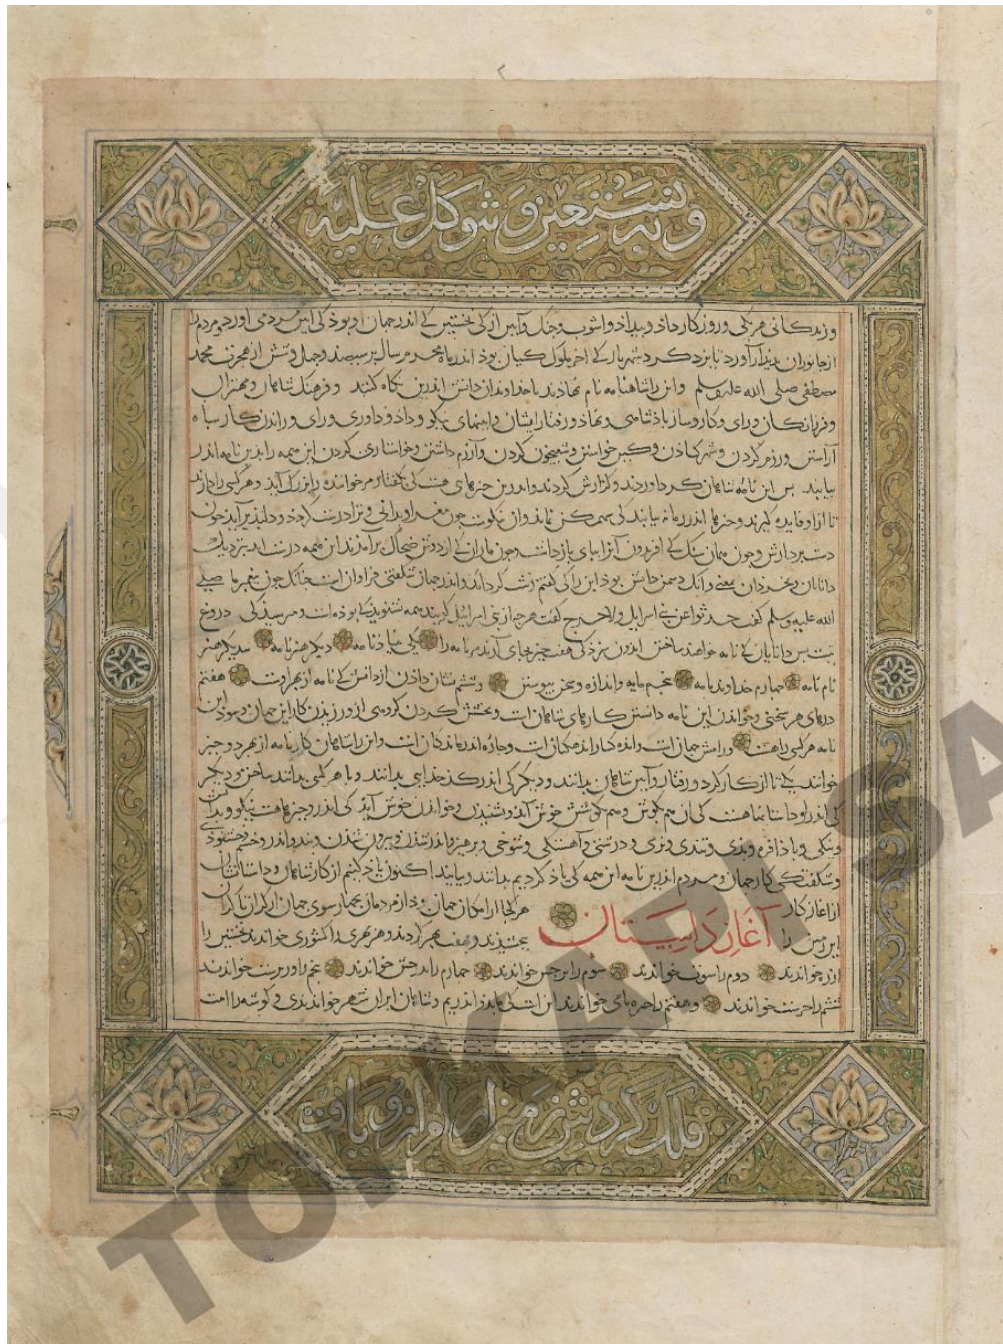 وبه نستعین و نتوکل علیه
و زندگانی هر یکی و روزگار داد و بیداد و آشوب و جنگ و آیین از کی نخستین کی اندر جهان او بود کی آیین مردمی آورد و مردم را
از جانوران پدیدار آورد تا یزدگرد شهریار کی آخر ملوک کیان بود اندر ماه محرم سال بر سیصد و چهل و شش از هجرت محمد
مصطفی صلی الله علیه وسلم و این را شاهنامه نام نهادند تا خداوندان دانش اندرین نگاه کنند و فرهنگ شاهان و مهتران
و فرزانگان و رای و کار و ساز پادشاهی و نهاد و رفتار ایشان و آیینهای نیکو و داد و داوری و رای و راندن کار سپاه
آراستن و رزم کردن و شهر گشادن و کین خواستن و شبیخون کردن و آزرم داشتن و خواستاری کردن این همه را بدین نامه اندر
بیابند بس این نامه شاهان گرد آوردند و گزارش کردند و اندرین چیزهای هست کی بگفتار مر خواننده را بزرگ آید و هر کسی را دارند
تا ازو فایده گیرند و چیزها اندر نامه بیابند کی سهمگن نماید و آن نیکوست چون مغز او بدانی و ترا درست گردد و دلپذیر آید چون
دست بردارش و چون همان سنگ کی افریدون آنرا بپای بازداشت و چون ماران کی از دوش ضحاک برآمدند این همه درست آید بنزدیک
دانایان و بخردان بمعنی و آنک دشمن دانش بود این را کی گفتم زشت گرداند و اندر جهان شگفتی فراوان است چنانک چون پیغمبر ما صلی
الله علیه وسلم گفت حدثوا عن بنی اسرائیل ولا حرج گفت هرچ از بنی اسرائیل گویند همه بشنوید کی بوده است و مرسید کی دروغ
نیست بس دانایان کی نامه خواهند ساختن ایذون سزد کی هفت چیز بجای آرند مر نامه را یکی بنیاد نامه دیگر هنر نامه سدیگر هنر
نام نامه چهارم خداوند نامه پنجم مایه و اندازه و سخن پیوستن ششم نشان دادن از دانش کی نامه از بهر اوست هفتم
درهای هر سخنی و خواندن این نامه دانستن کارهای شاهان است و بخشش کردن گروهی از ورزیدن کار این جهان و سود این
نامه هر کسی را هست و رامش جهان است و انده گسار اندهگنان است و چاره درماندگان است و این را شاهان کارنامه از بهر دو چیز
خوانند یکی تا از کارکرد و رفتار و آیین شاهان بدانند و دیگر کی اندر کدخدایی بدانند و با هر کسی بدانند ساختن و دیگر
کی اندر او داستانها هست کی آن هم بگوش و هم بکوشش خوش آید و شنیدن و خواندن خوش آید کی اندر چیزها هست نیکو و بدانست
و نیکی و پاداش و بدی و تندی و نرمی و درشتی و آهستگی و شوخی و پرهیز و اندر شدن و بیرون شدن و پند و اندرز و خشم و خشنودی
و شگفتی کار جهان و مردم اندرین نامه این همه کی یاد کردیم بدانند و بیابند اکنون یاد کنیم از کار شاهان و داستان ایشان
از آغاز کار
آغاز داستان
هر کجا آرامگاه جهان بود از مردمان بچهار سوی جهان از کران تا کران
این زمین را
ببخشیدند و بهفت بهر کردند و هر بهری را کشوری خواندند نخستین را
ارزه خواندند دوم را سوت خواندند سوم را برحس خواندند چهارم را بدحس خواندند پنجم را ورپرست خواندند
ششم را حرست خواندند و هفتم را خره بامی خواندند این است کی ما بدو اندریم و شاهان ایران شهر خواندندی و گوشه را امت
فلک گردش زمین آرام ازو یافت
TOPKAPI SA